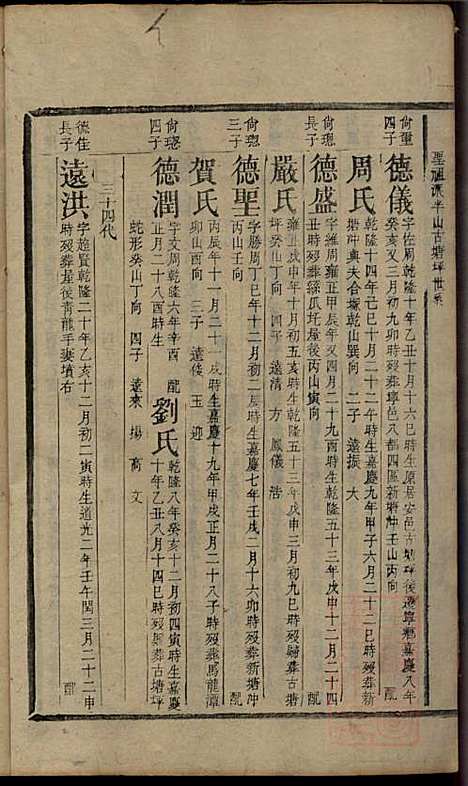 聖祖派半山古塘坪世系
尙重四子
德儀
字佐周乾隆十年乙丑十月十六巳時生原居安邑古塘坪後遷寧鄉嘉慶八年
癸亥又三月初九卯時歿葬寧邑八都四區新塘沖壬山丙向 配
周氏
乾隆十四年己巳十月二十二午時生嘉慶九年甲子六月二十二巳時歿葬新
塘沖與夫合塚乾山巽向 二子 遠振 大
尙璁長子
德盛
字維周雍正甲辰年又四月二十九酉時生乾隆五十三年戊申十二月二十四
丑時歿葬絲瓜圫屋後丙山寅向 配
嚴氏
雍正戊申年十月初五亥時生乾隆五十三年戊申三月初九巳時歿歸葬古塘
坪癸山丁向 四子 遠清 方 鳳儀 浩
尙璁三子
德聖
字勝周丁巳年十二月初二辰時生嘉慶七年壬戌二月十六卯時歿葬新塘沖
丙山壬向 配
賀氏
丙辰年十一月二十一戌時生嘉慶十九年甲戌正月二十八子時歿葬馬龍潭
卯山酉向 三子 遠倰 玉 迎
尙璁四子
德潤
字文周乾隆六年辛酉
正月二十八酉時生 配
劉氏
乾隆八年癸亥十二月初四寅時生嘉慶
十年乙丑八月十四巳時歿葬古塘坪
蛇形癸山丁向 四子 遠來 揚 喬 文
三十四代
德隹長子
遠洪
字趙賢乾隆二十年乙亥十二月初二寅時生道光二年壬午閏三月二十二申
時歿葬屋後青龍手妻墳右 配